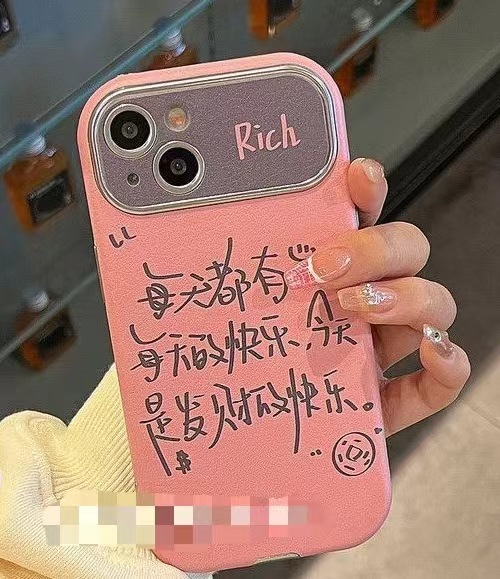 Rich
“每天都有
每天的快乐，今天
是发财的快乐。”
$